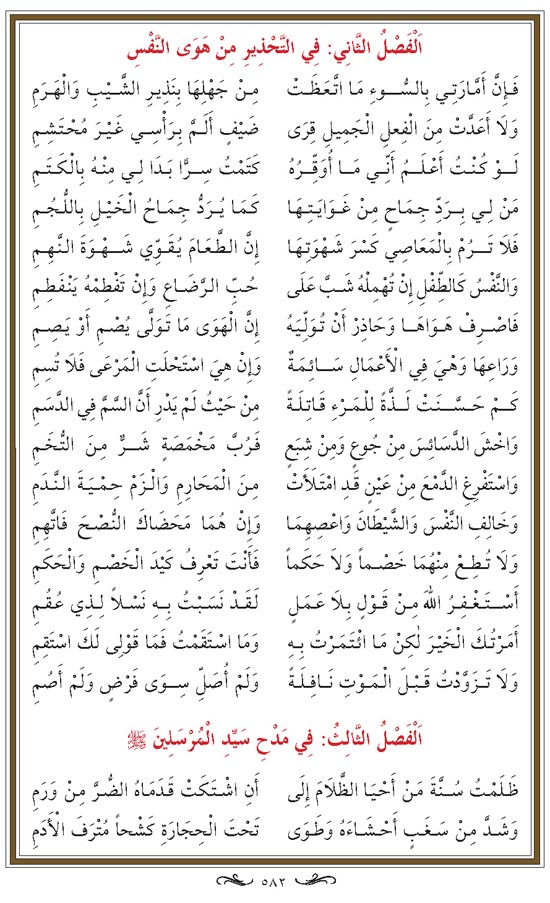 اَلْفَصْلُ الثَّانِي: فِي التَّحْذِيرِ مِنْ هَوَى النَّفْسِ
فَإِنَّ أَمَّارَتِي بِالسُّوءِ مَا اتَّعَظَتْ مِنْ جَهْلِهَا بِنَذِيرِ الشَّيْبِ وَالْهَرَمِ
وَلَا أَعَدَّتْ مِنَ الْفِعْلِ الْجَمِيلِ قِرَى ضَيْفٍ أَلَمَّ بِرَأْسِي غَيْرَ مُحْتَشِمِ
لَوْ كُنْتُ أَعْلَمُ أَنِّي مَا أُوَقِّرُهُ كَتَمْتُ سِرًّا بَدَا لِي مِنْهُ بِالْكَتَمِ
مَنْ لِي بِرَدِّ جِمَاحٍ مِنْ غَوَايَتِهَا كَمَا يُرَدُّ جِمَاحُ الْخَيْلِ بِاللُّجُمِ
فَلَا تَرُمْ بِالْمَعَاصِي كَسْرَ شَهْوَتِهَا إِنَّ الطَّعَامَ يُقَوِّي شَهْوَةَ النَّهِمِ
وَالنَّفْسُ كَالطِّفْلِ إِنْ تُهْمِلْهُ شَبَّ عَلَى حُبِّ الرَّضَاعِ وَإِنْ تَفْطِمْهُ يَنْفَطِمِ
فَاصْرِفْ هَوَاهَا وَحَاذِرْ أَنْ تُوَلِّيَهُ إِنَّ الْهَوَى مَا تَوَلَّى يُصْمِ أَوْ يَصِمِ
وَرَاعِهَا وَهْيَ فِي الْأَعْمَالِ سَائِمَةٌ وَإِنْ هِيَ اسْتَحْلَتِ الْمَرْعَى فَلَا تُسِمِ
كَمْ حَسَّنَتْ لَذَّةً لِلْمَرْءِ قَاتِلَةً مِنْ حَيْثُ لَمْ يَدْرِ أَنَّ السَّمَّ فِي الدَّسَمِ
وَاخْشَ الدَّسَائِسَ مِنْ جُوعٍ وَمِنْ شِبَعٍ فَرُبَّ مَخْمَصَةٍ شَرٌّ مِنَ التُّخَمِ
وَاسْتَفْرِغِ الدَّمْعَ مِنْ عَيْنٍ قَدِ امْتَلَأَتْ مِنَ الْمَحَارِمِ وَالْزَمْ حِمْيَةَ النَّدَمِ
وَخَالِفِ النَّفْسَ وَالشَّيْطَانَ وَاعْصِهِمَا وَإِنْ هُمَا مَحَضَاكَ النُّصْحَ فَاتَّهِمِ
وَلَا تُطِعْ مِنْهُمَا خَصْماً وَلَا حَكَماً فَأَنْتَ تَعْرِفُ كَيْدَ الْخَصْمِ وَالْحَكَمِ
أَسْتَغْفِرُ اللهَ مِنْ قَوْلٍ بِلَا عَمَلٍ لَقَدْ نَسَبْتُ بِهِ نَسْلاً لِذِي عُقُمِ
أَمَرْتُكَ الْخَيْرَ لٰكِنْ مَا ائْتَمَرْتُ بِهِ وَمَا اسْتَقَمْتُ فَمَا قَوْلِى لَكَ اسْتَقِمِ
وَلَا تَزَوَّدْتُ قَبْلَ الْمَوْتِ نَافِلَةً وَلَمْ أُصَلِّ سِوَى فَرْضٍ وَلَمْ أَصُمِ
اَلْفَصْلُ الثَّالِثُ: فِي مَدْحِ سَيِّدِ الْمُرْسَلِينَ ﷺ
ظَلَمْتُ سُنَّةَ مَنْ أَحْيَا الظَّلَامَ إِلَى أَنِ اشْتَكَتْ قَدَمَاهُ الضُّرَّ مِنْ وَرَمِ
وَشَدَّ مِنْ سَغَبٍ أَحْشَاءَهُ وَطَوَى تَحْتَ الْحِجَارَةِ كَشْحاً مُتْرَفَ الْأَدَمِ
٥٨٢